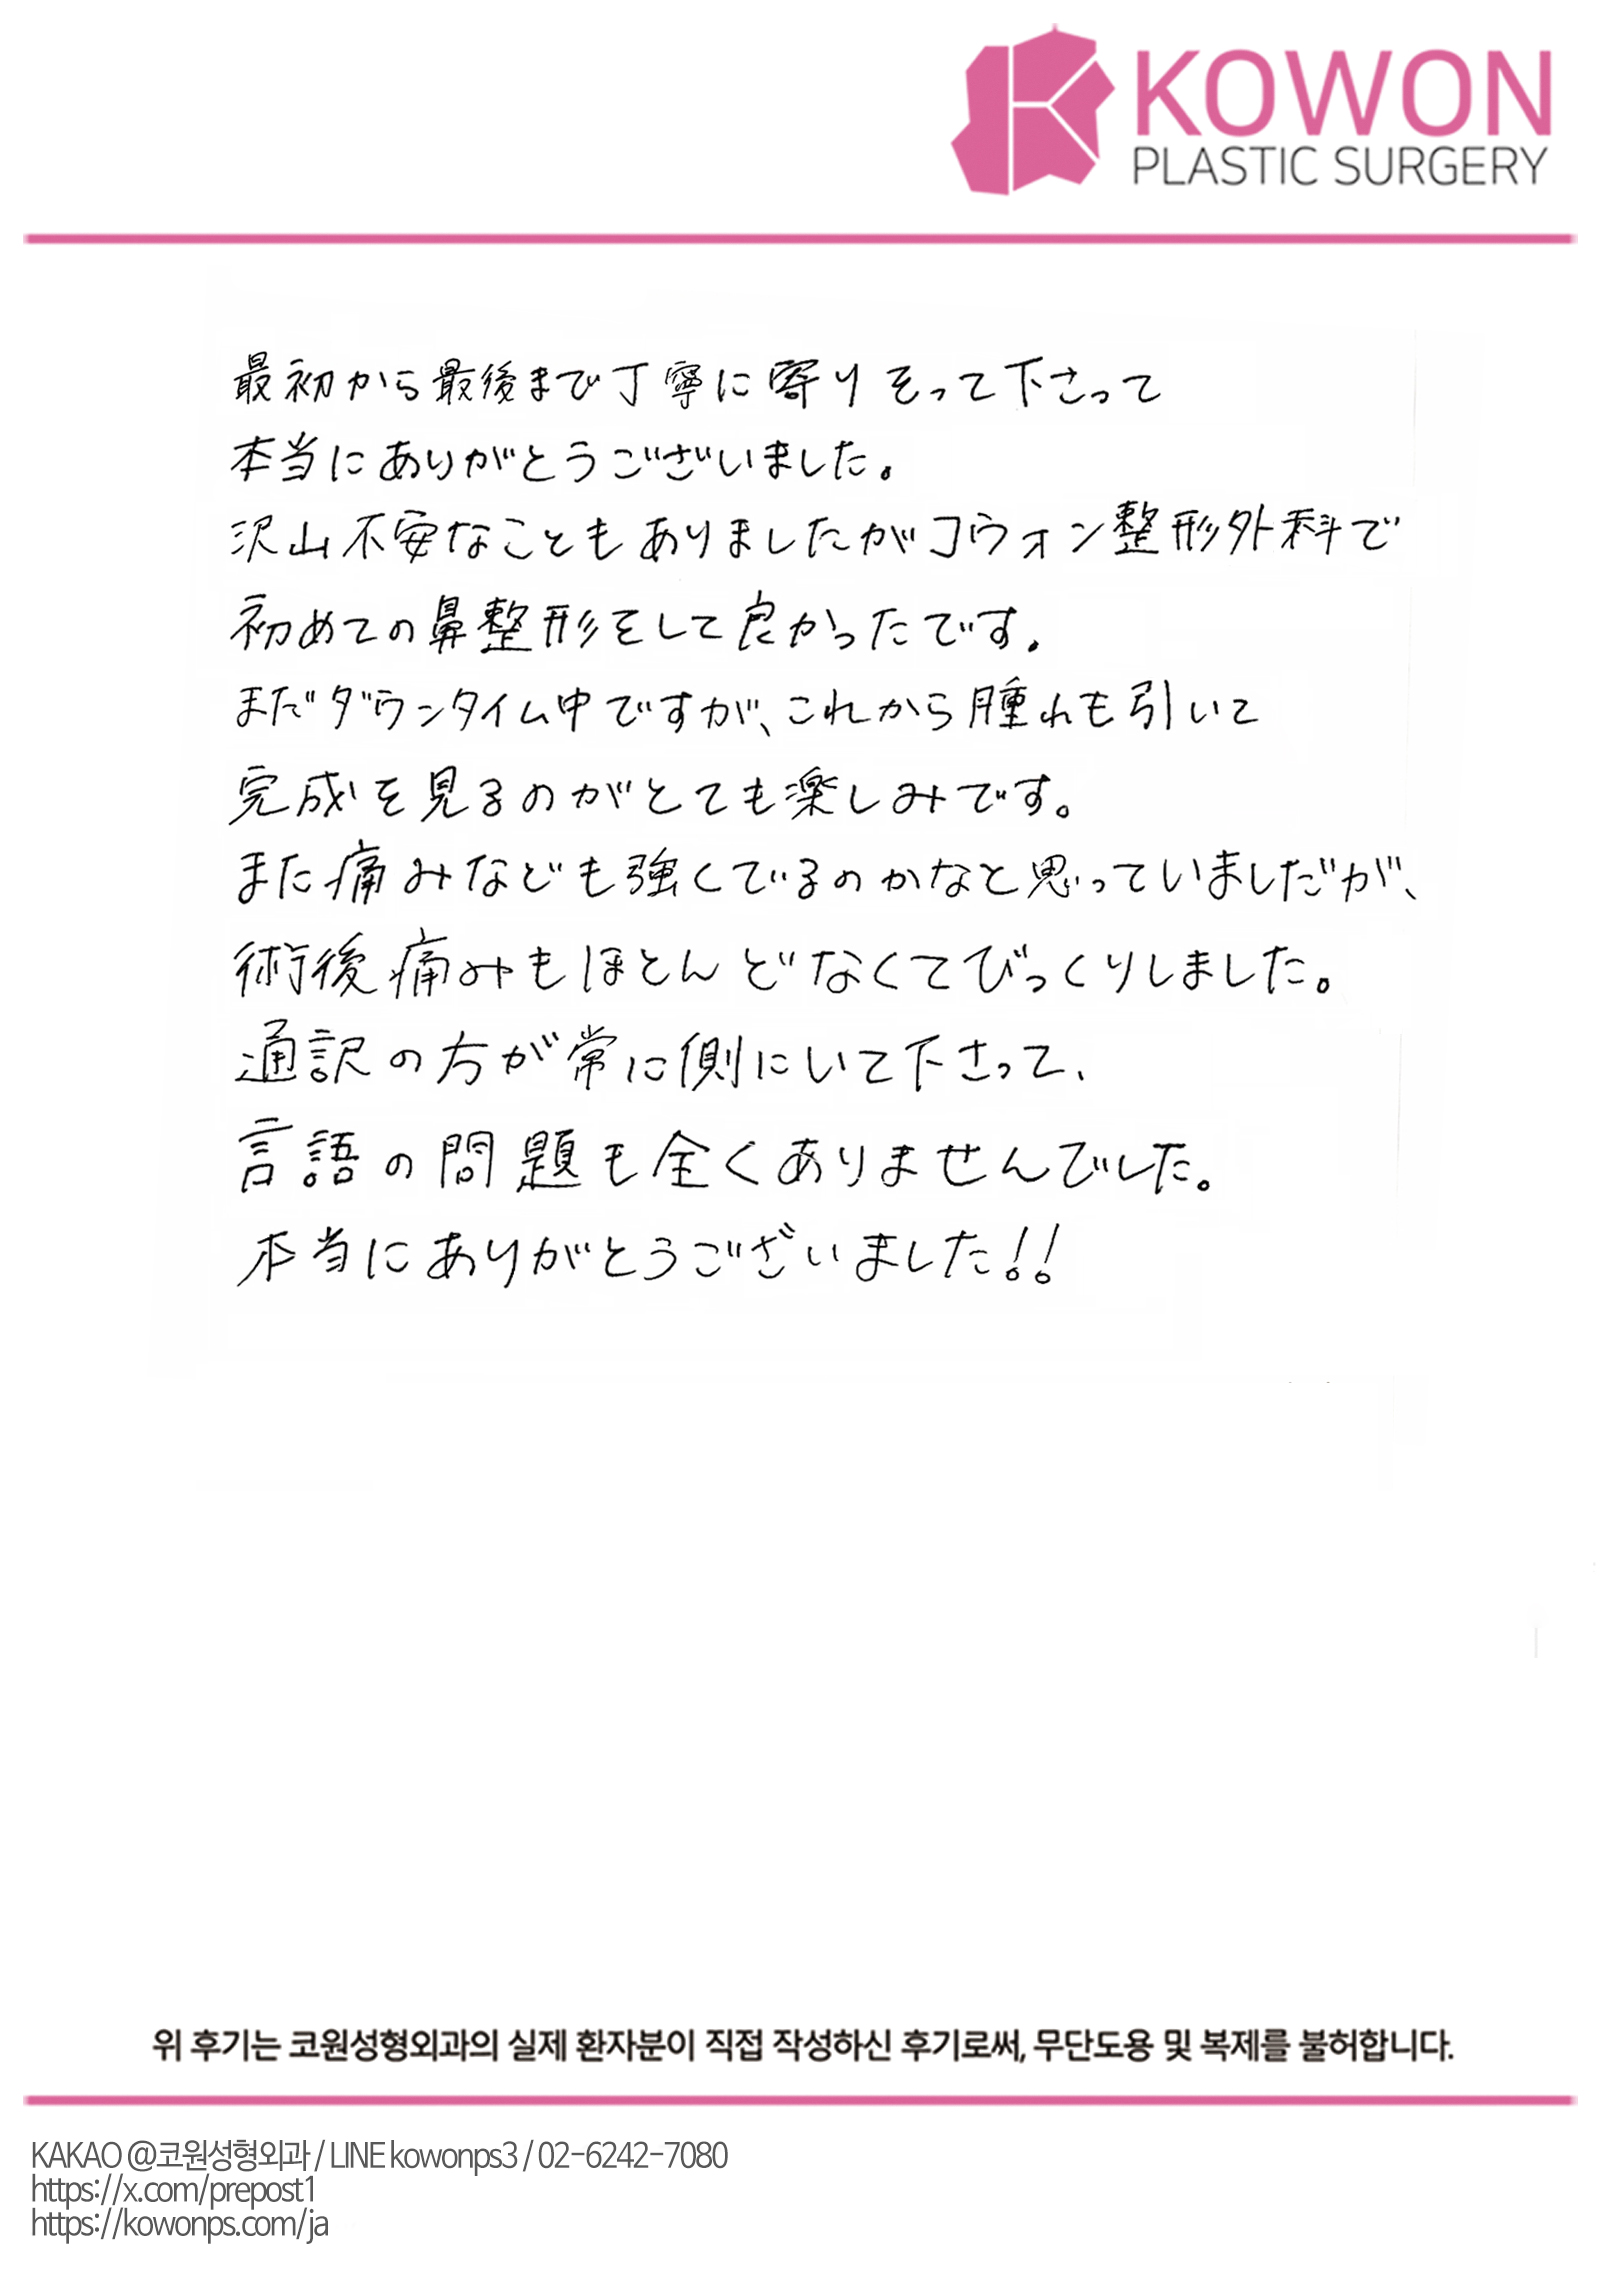 KOWON
PLASTIC SURGERY
最初から最後まで丁寧に寄りそって下さって
本当にありがとうございました。
沢山不安なこともありましたがコウォン整形外科で
初めての鼻整形をして良かったです。
まだダウンタイム中ですが、これから腫れも引いて
完成を見るのがとても楽しみです。
また痛みなども強くでるのかなと思っていましだが、
術後痛みもほとんどなくてびっくりしました。
通訳の方が常に側にいて下さって、
言語の問題も全くありませんでした。
本当にありがとうございました!!
위 후기는 코원성형외과의 실제 환자분이 직접 작성하신 후기로써, 무단도용 및 복제를 불허합니다.
KAKAO @코원성형외과 / LINE kowonps3 / 02-6242-7080
https://x.com/prepost1
https://kowonps.com/ja